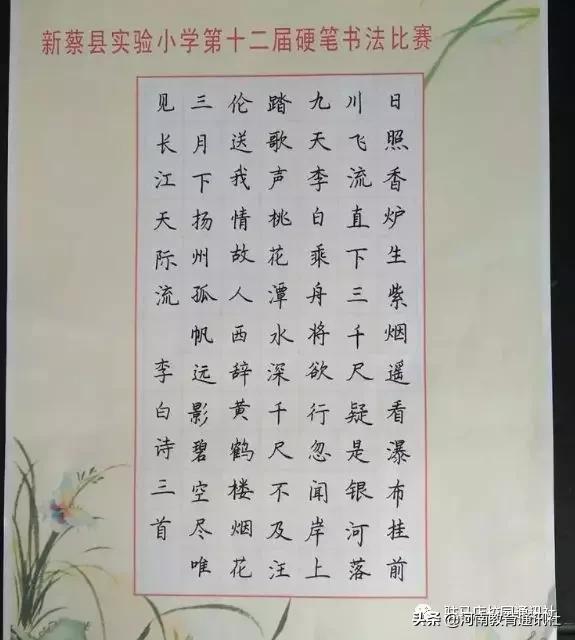 新蔡县实验小学第十二届硬笔书法比赛
日照香炉生紫烟遥看瀑布挂前
川飞流直下三千尺疑是银河落
九天李白乘舟将欲行忽闻岸上
踏歌声桃花潭水深千尺不及汪
伦送我情故人西辞黄鹤楼烟花
三月下扬州孤帆远影碧空尽唯
见长江天际流 李白诗三首
驻马店校园通讯社
头条@河南教育通讯社